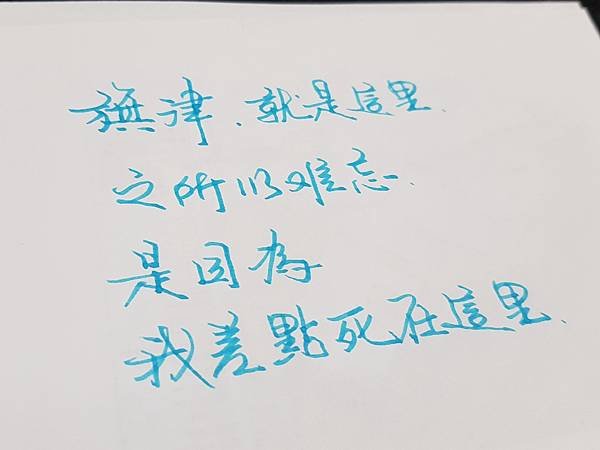 旗津.就是這里.
之所以难忘.
是因為
我差點死在這里.